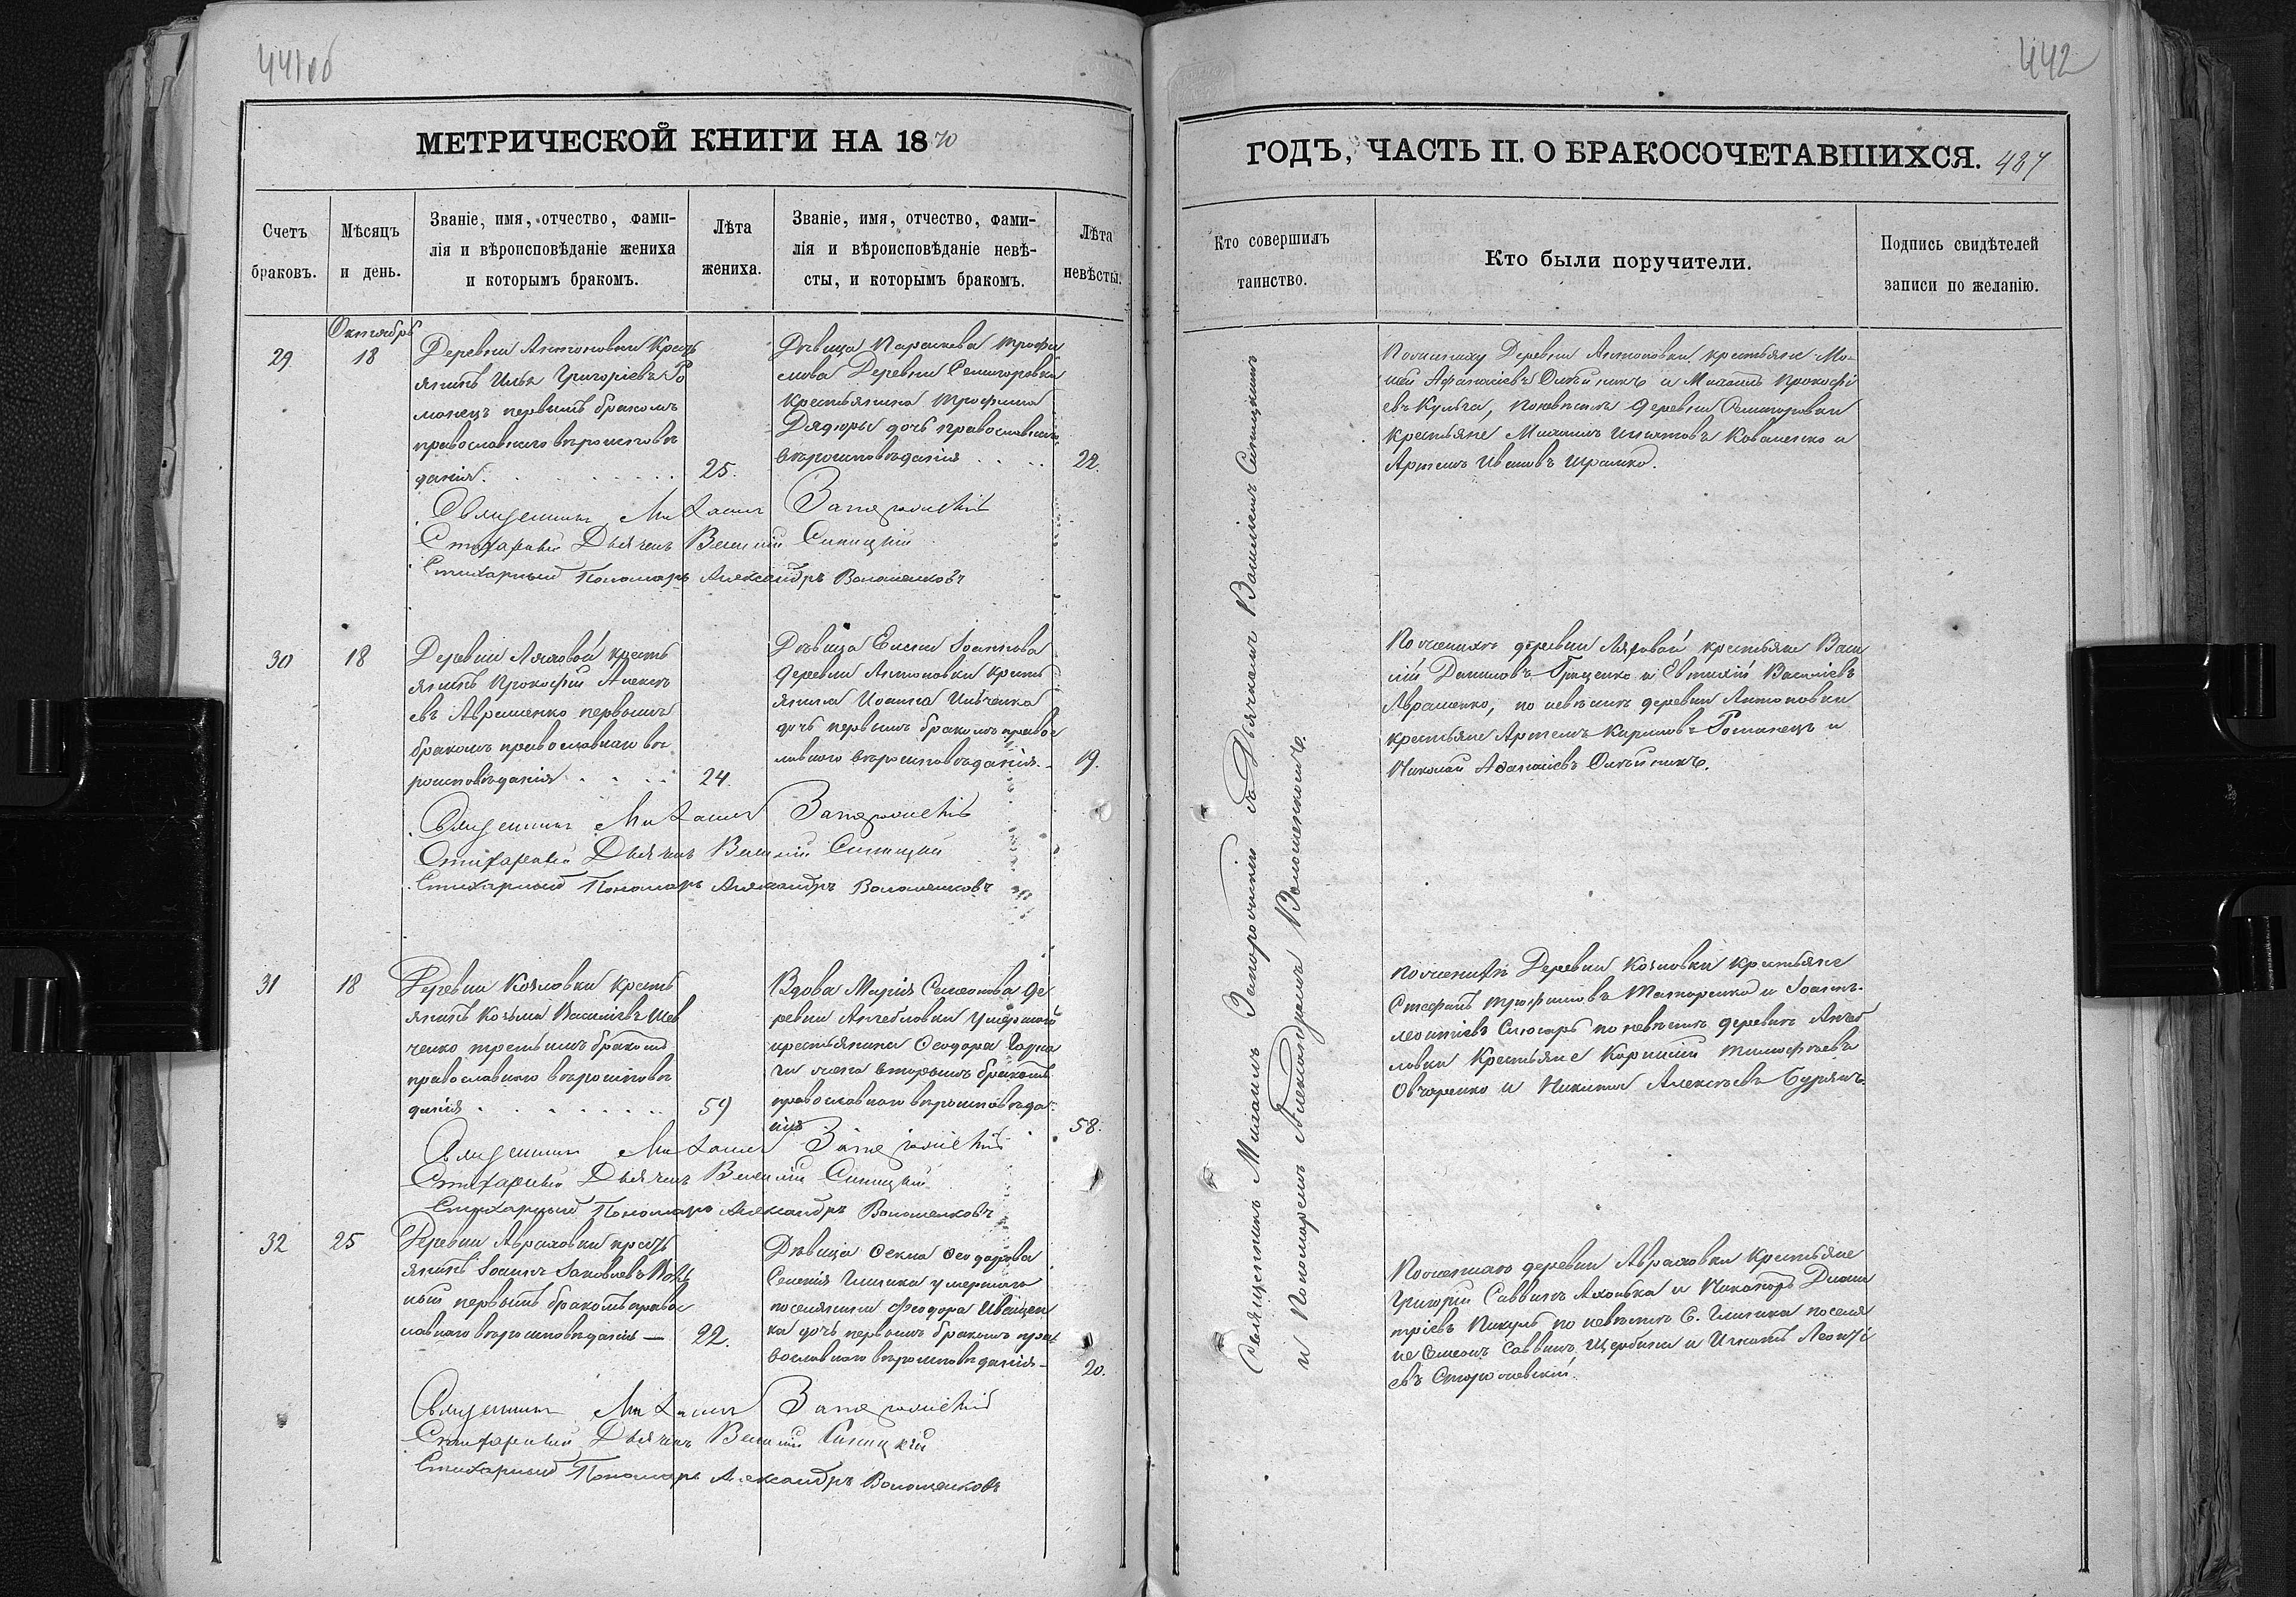 441об
МЕТРИЧЕСКОЙ КНИГИ НА 1870
Счетъ
браковъ.
Мѣсяцъ
и день.
Званіе, имя, отчество, фами-
лія и вѣроисповѣданіе жениха
и которымъ бракомъ.
Лѣта
жениха.
Званіе, имя, отчество, фами-
лія и вѣроисповѣданіе невѣ-
сты, и которымъ бракомъ.
Лѣта
невѣсты.
29
Октябрь
18
Деревни Антоновки Кресть
янинъ Илья Григоріевъ Ро
манецъ первымъ бракомъ
православнаго вѣроисповѣ
данія.
25.
Дѣвица Параскева Трофи
мова Деревни Семигоровки
Крестьянина Трофима
Дядюры дочь православнаго
вѣроисповѣданія
22.
Священникъ Михаилъ Запорожскій
Стихарный Дьячекъ Василій Синицкій
Стихарный Пономарь Александръ Волошенковъ
30
18
Деревни Ляховой кресть
янинъ Прокофій Алексѣ
евъ Авраменко первымъ
бракомъ православнаго вѣ
роисповѣданія
24.
Дѣвица Елена Іоаннова
Деревни Антоновки кресть
янина Иоанна Ивченка
дочь первымъ бракомъ правос
лавнаго вѣроисповѣданія.
19.
Священникъ Михаилъ Запорожскій
Стихарный Дьячекъ Василій Синицкій
Стихарный Пономарь Александръ Волошенковъ
31
18
Деревни Козловки кресть
янинъ Козьма Василіевъ Шев
ченко третьимъ бракомъ
православнаго вѣроисповѣ
данія
59
Вдова Марія Семеонова де
ревни умершаго
крестьянина Ѳеодора
жена вторымъ бракомъ
православнаго вѣроисповѣда
нія
58.
Священникъ Михаилъ Запорожскій
Стихарный Дьячекъ Василій Синицкій
Стихарный Пономарь Александръ Волошенковъ
32
25
Деревни Авраховки кресть
янинъ Іоаннъ Іаковлевъ
первымъ бракомъ правос
лавнаго вѣроисповѣданія —
22.
Дѣвица Ѳекла Ѳеодорова
Селенія умершаго
поселянина Феодора Иващен
ка дочь первымъ бракомъ пра
вославнаго вѣроисповѣданія
20.
Священникъ Михаилъ Запорожскій
Стихарный Дьячекъ Василій Синицкій
Стихарный Пономарь Александръ Волошенковъ
442
ГОДЪ, ЧАСТЬ II. О БРАКОСОЧЕТАВШИХСЯ. 487
Кто совершилъ
таинство.
Кто были поручители.
Подпись свидѣтелей
записи по желанію.
Священникъ Михаилъ Запорожскій съ Дьячкомъ Василіемъ Синицкимъ
и Пономаремъ Александромъ Волошенкомъ.
По жениху Деревни Антоновки крестьяне Мо-
исей Афанасіевъ Олейникъ и Михаилъ Прокофі
евъ Кульга, по невѣстѣ деревни Семигоровки
крестьяне Михаилъ Игнатовъ Коваленко и
Артемъ Ивановъ Шрамко.
По женихѣ деревни Ляховой крестьяне Васи
лій Даниловъ Гриценко и Евтихій Василіевъ
Авраменко, по невѣстѣ деревни Антоновки
крестьяне Артемъ Карповъ Романецъ и
Николай Афанасіевъ Олейникъ.
По женихѣ Деревни Козловки крестьяне
Стефанъ Трофимовъ Татаренко и Іоаннъ
Леонтіевъ Слюсарь по невѣстѣ деревни
крестьяне Корнилій Тимофѣевъ
Овчаренко и Никита Алексѣевъ Бурякъ.
По жениху деревни Авраховки крестьяне
Григорій Саввинъ и Никаноръ Дими
тріевъ Пикуль по невѣстѣ С. поселя
не Симеонъ Саввинъ Щербина и Игнатъ Леонті
евъ